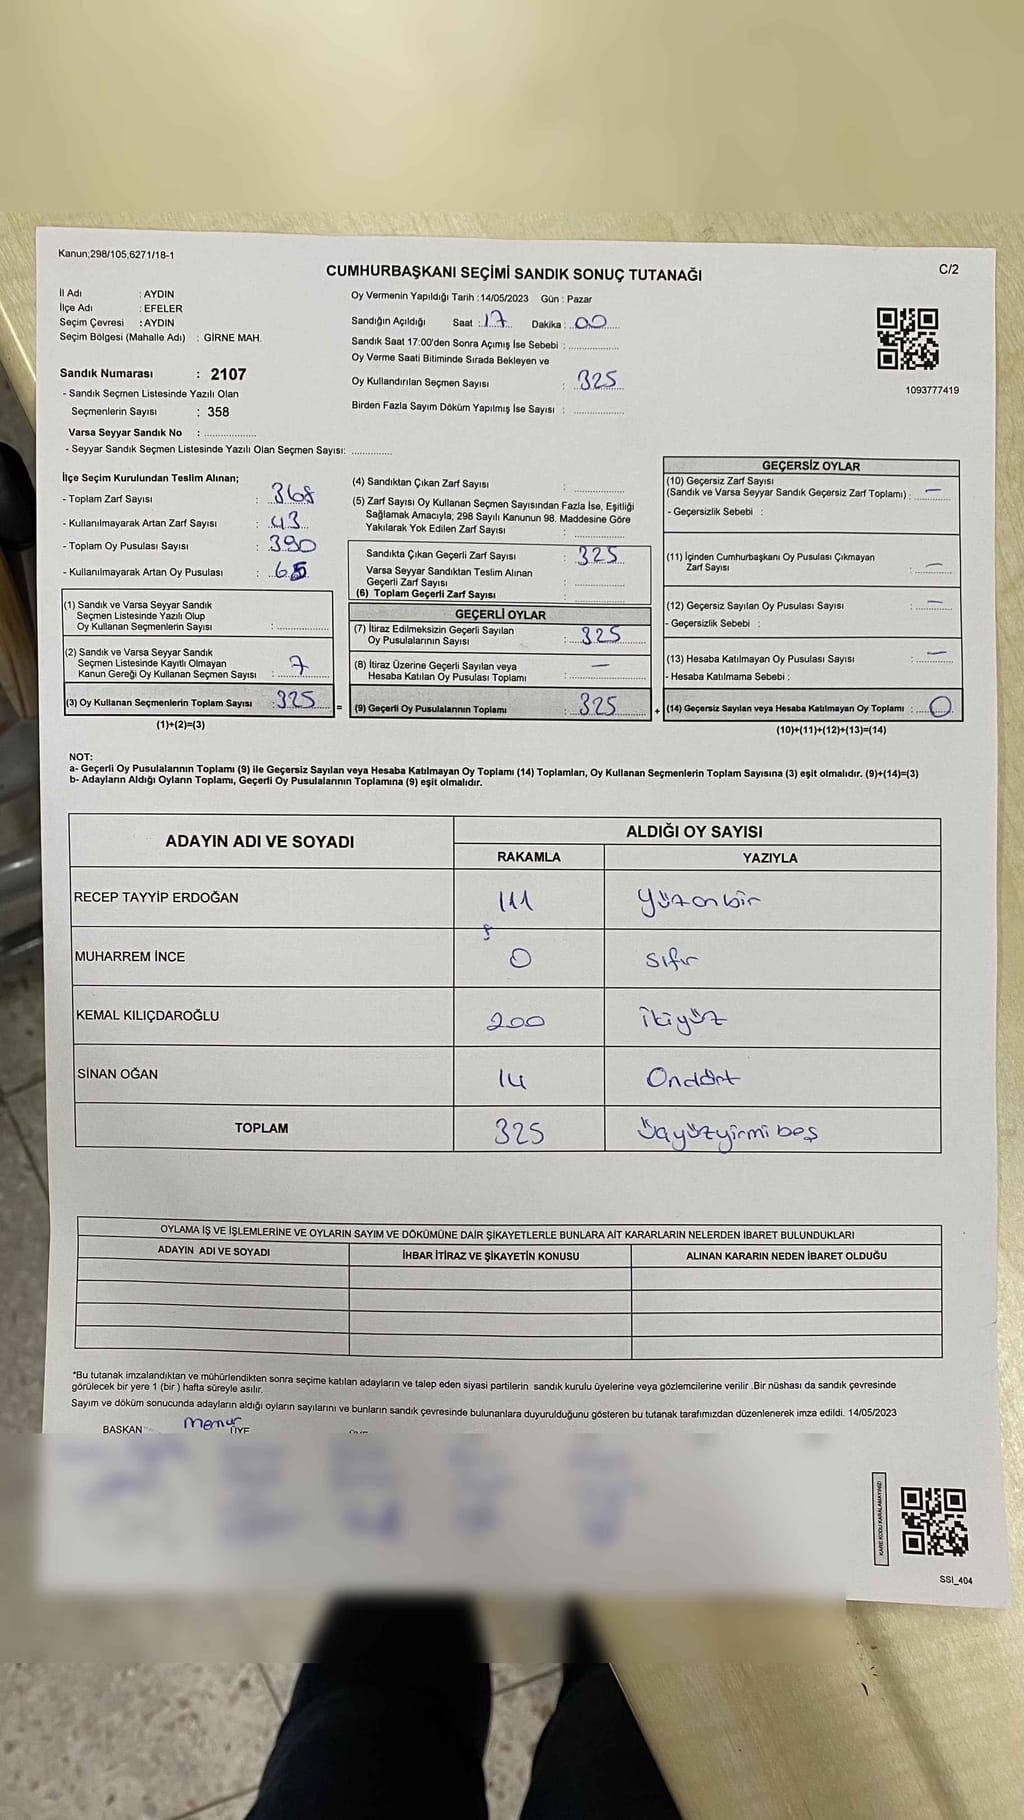 Kanun;298/105,6271/18-1
C/2
CUMHURBAŞKANI SEÇİMİ SANDIK SONUÇ TUTANAĞI
İl Adı : AYDIN
İlçe Adı : EFELER
Seçim Çevresi : AYDIN
Seçim Bölgesi (Mahalle Adı) : GİRNE MAH.
Sandık Numarası : 2107
- Sandık Seçmen Listesinde Yazılı Olan
Seçmenlerin Sayısı : 358
Varsa Seyyar Sandık No :
- Seyyar Sandık Seçmen Listesinde Yazılı Olan Seçmen Sayısı:
Oy Vermenin Yapıldığı Tarih :14/05/2023 Gün : Pazar
Sandığın Açıldığı Saat : 17 Dakika : 00
Sandık Saat 17:00'den Sonra Açımış İse Sebebi :
Oy Verme Saati Bitiminde Sırada Bekleyen ve
Oy Kullandırılan Seçmen Sayısı : 325
Birden Fazla Sayım Döküm Yapılmış İse Sayısı :
1093777419
İlçe Seçim Kurulundan Teslim Alınan;
- Toplam Zarf Sayısı : 368
- Kullanılmayarak Artan Zarf Sayısı : 43
- Toplam Oy Pusulası Sayısı : 390
- Kullanılmayarak Artan Oy Pusulası : 65
(1) Sandık ve Varsa Seyyar Sandık
Seçmen Listesinde Yazılı Olup
Oy Kullanan Seçmenlerin Sayısı :
(2) Sandık ve Varsa Seyyar Sandık
Seçmen Listesinde Kayıtlı Olmayan
Kanun Gereği Oy Kullanan Seçmen Sayısı : 7
(3) Oy Kullanan Seçmenlerin Toplam Sayısı : 325
(1)+(2)=(3)
(4) Sandıktan Çıkan Zarf Sayısı :
(5) Zarf Sayısı Oy Kullanan Seçmen Sayısından Fazla İse, Eşitliği
Sağlamak Amacıyla; 298 Sayılı Kanunun 98. Maddesine Göre
Yakılarak Yok Edilen Zarf Sayısı :
Sandıkta Çıkan Geçerli Zarf Sayısı : 325
Varsa Seyyar Sandıktan Teslim Alınan
Geçerli Zarf Sayısı :
(6) Toplam Geçerli Zarf Sayısı :
GEÇERLİ OYLAR
(7) İtiraz Edilmeksizin Geçerli Sayılan
Oy Pusulalarının Sayısı : 325
(8) İtiraz Üzerine Geçerli Sayılan veya
Hesaba Katılan Oy Pusulası Toplamı : —
= (9) Geçerli Oy Pusulalarının Toplamı : 325
GEÇERSİZ OYLAR
(10) Geçersiz Zarf Sayısı
(Sandık ve Varsa Seyyar Sandık Geçersiz Zarf Toplamı) : —
- Geçersizlik Sebebi :
(11) İçinden Cumhurbaşkanı Oy Pusulası Çıkmayan
Zarf Sayısı : —
(12) Geçersiz Sayılan Oy Pusulası Sayısı : —
- Geçersizlik Sebebi :
(13) Hesaba Katılmayan Oy Pusulası Sayısı : —
- Hesaba Katılmama Sebebi :
+ (14) Geçersiz Sayılan veya Hesaba Katılmayan Oy Toplamı : 0
(10)+(11)+(12)+(13)=(14)
NOT:
a- Geçerli Oy Pusulalarının Toplamı (9) ile Geçersiz Sayılan veya Hesaba Katılmayan Oy Toplamı (14) Toplamları, Oy Kullanan Seçmenlerin Toplam Sayısına (3) eşit olmalıdır. (9)+(14)=(3)
b- Adayların Aldığı Oyların Toplamı, Geçerli Oy Pusulalarının Toplamına (9) eşit olmalıdır.
ADAYIN ADI VE SOYADI ALDIĞI OY SAYISI
RAKAMLA YAZIYLA
RECEP TAYYİP ERDOĞAN 111 Yüzonbir
MUHARREM İNCE 0 sıfır
KEMAL KILIÇDAROĞLU 200 İkiyüz
SİNAN OĞAN 14 Ondört
TOPLAM 325 üçyüzyirmi beş
OYLAMA İŞ VE İŞLEMLERİNE VE OYLARIN SAYIM VE DÖKÜMÜNE DAİR ŞİKAYETLERLE BUNLARA AİT KARARLARIN NELERDEN İBARET BULUNDUKLARI
ADAYIN ADI VE SOYADI İHBAR İTİRAZ VE ŞİKAYETİN KONUSU ALINAN KARARIN NEDEN İBARET OLDUĞU
*Bu tutanak imzalandıktan ve mühürlendikten sonra seçime katılan adayların ve talep eden siyasi partilerin sandık kurulu üyelerine veya gözlemcilerine verilir .Bir nüshası da sandık çevresinde
görülecek bir yere 1 (bir ) hafta süreyle asılır.
Sayım ve döküm sonucunda adayların aldığı oyların sayılarını ve bunların sandık çevresinde bulunanlara duyurulduğunu gösteren bu tutanak tarafımızdan düzenlenerek imza edildi. 14/05/2023
BAŞKAN memur ÜYE
KARE KODU KARALAMAYINIZ!
SSI_404